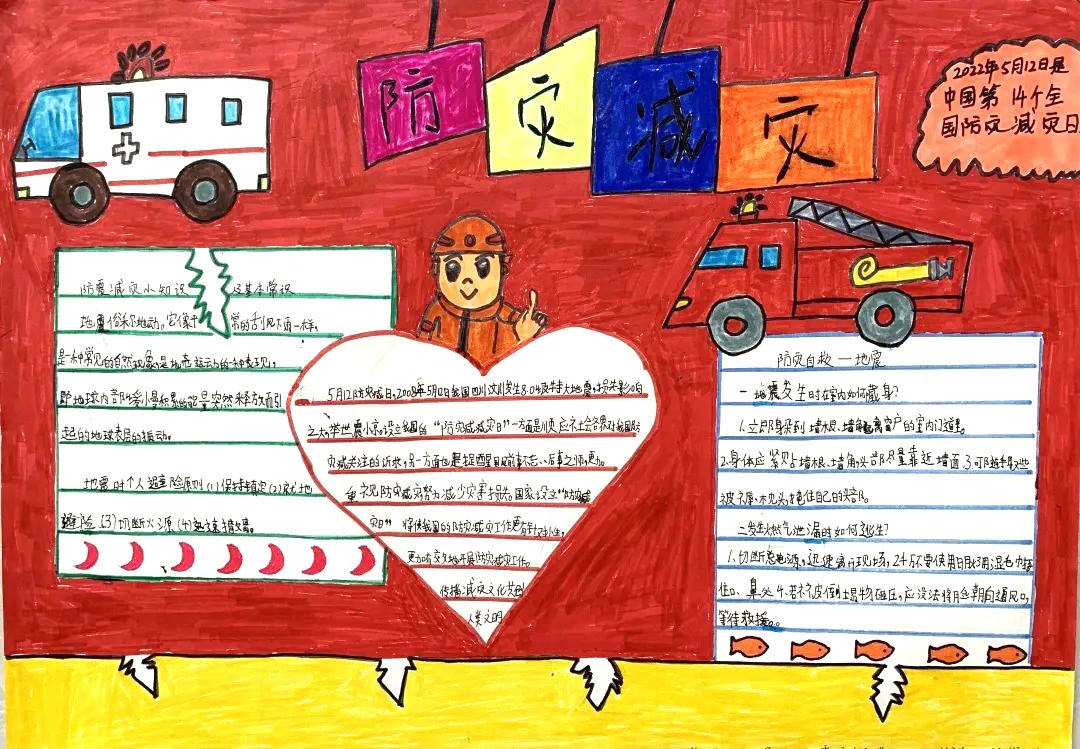 防灾减灾
2022年5月12日是
中国第14个全
国防灾减灾日
防震减灾小知识 及基本常识
地震俗称地动。它像平常的刮风下雨一样,
是一种常见的自然现象,是地壳运动的一种表现,
即地球内部缓慢积累的能量突然释放而引
起的地球表层的振动。
地震时个人避震险原则(1)保持镇定(2)就地
避险(3)切断火源(4)
5月12防灾减日,2008年5月12日我国四川汶川发生8.0级特大地震,损失影响
之大,举世震 设立我国的“防灾减灾日”一方面是顺应社会各界对我国防
灾减关注的诉求,另一方面也是提醒国 前事不忘、后事之师,更
重视防灾减灾努力减少灾害损失。国家设立“防灾减
灾日” 将使我国的防灾减灾工作更有针对性,
更加有 地开展防灾减灾工作。
传播减灾文化共创
人类文明
防灾自救—地震
一地震发生时在室内如何藏身?
1.立即身朵到墙根、墙角 离窗户的室内门道里。
2.身体应紧贴墙根、墙角,头部尽量靠近墙面3可随手
被褥、 住自己的头部。
二发生燃气泄漏时如何逃生?
1.切断 电源,迅速离开现场,2千万不要使用日用 3用湿毛巾捂
住口、鼻处4.若不皮倒塌物砸压,应设法将 朝向通风口,
等待救援。